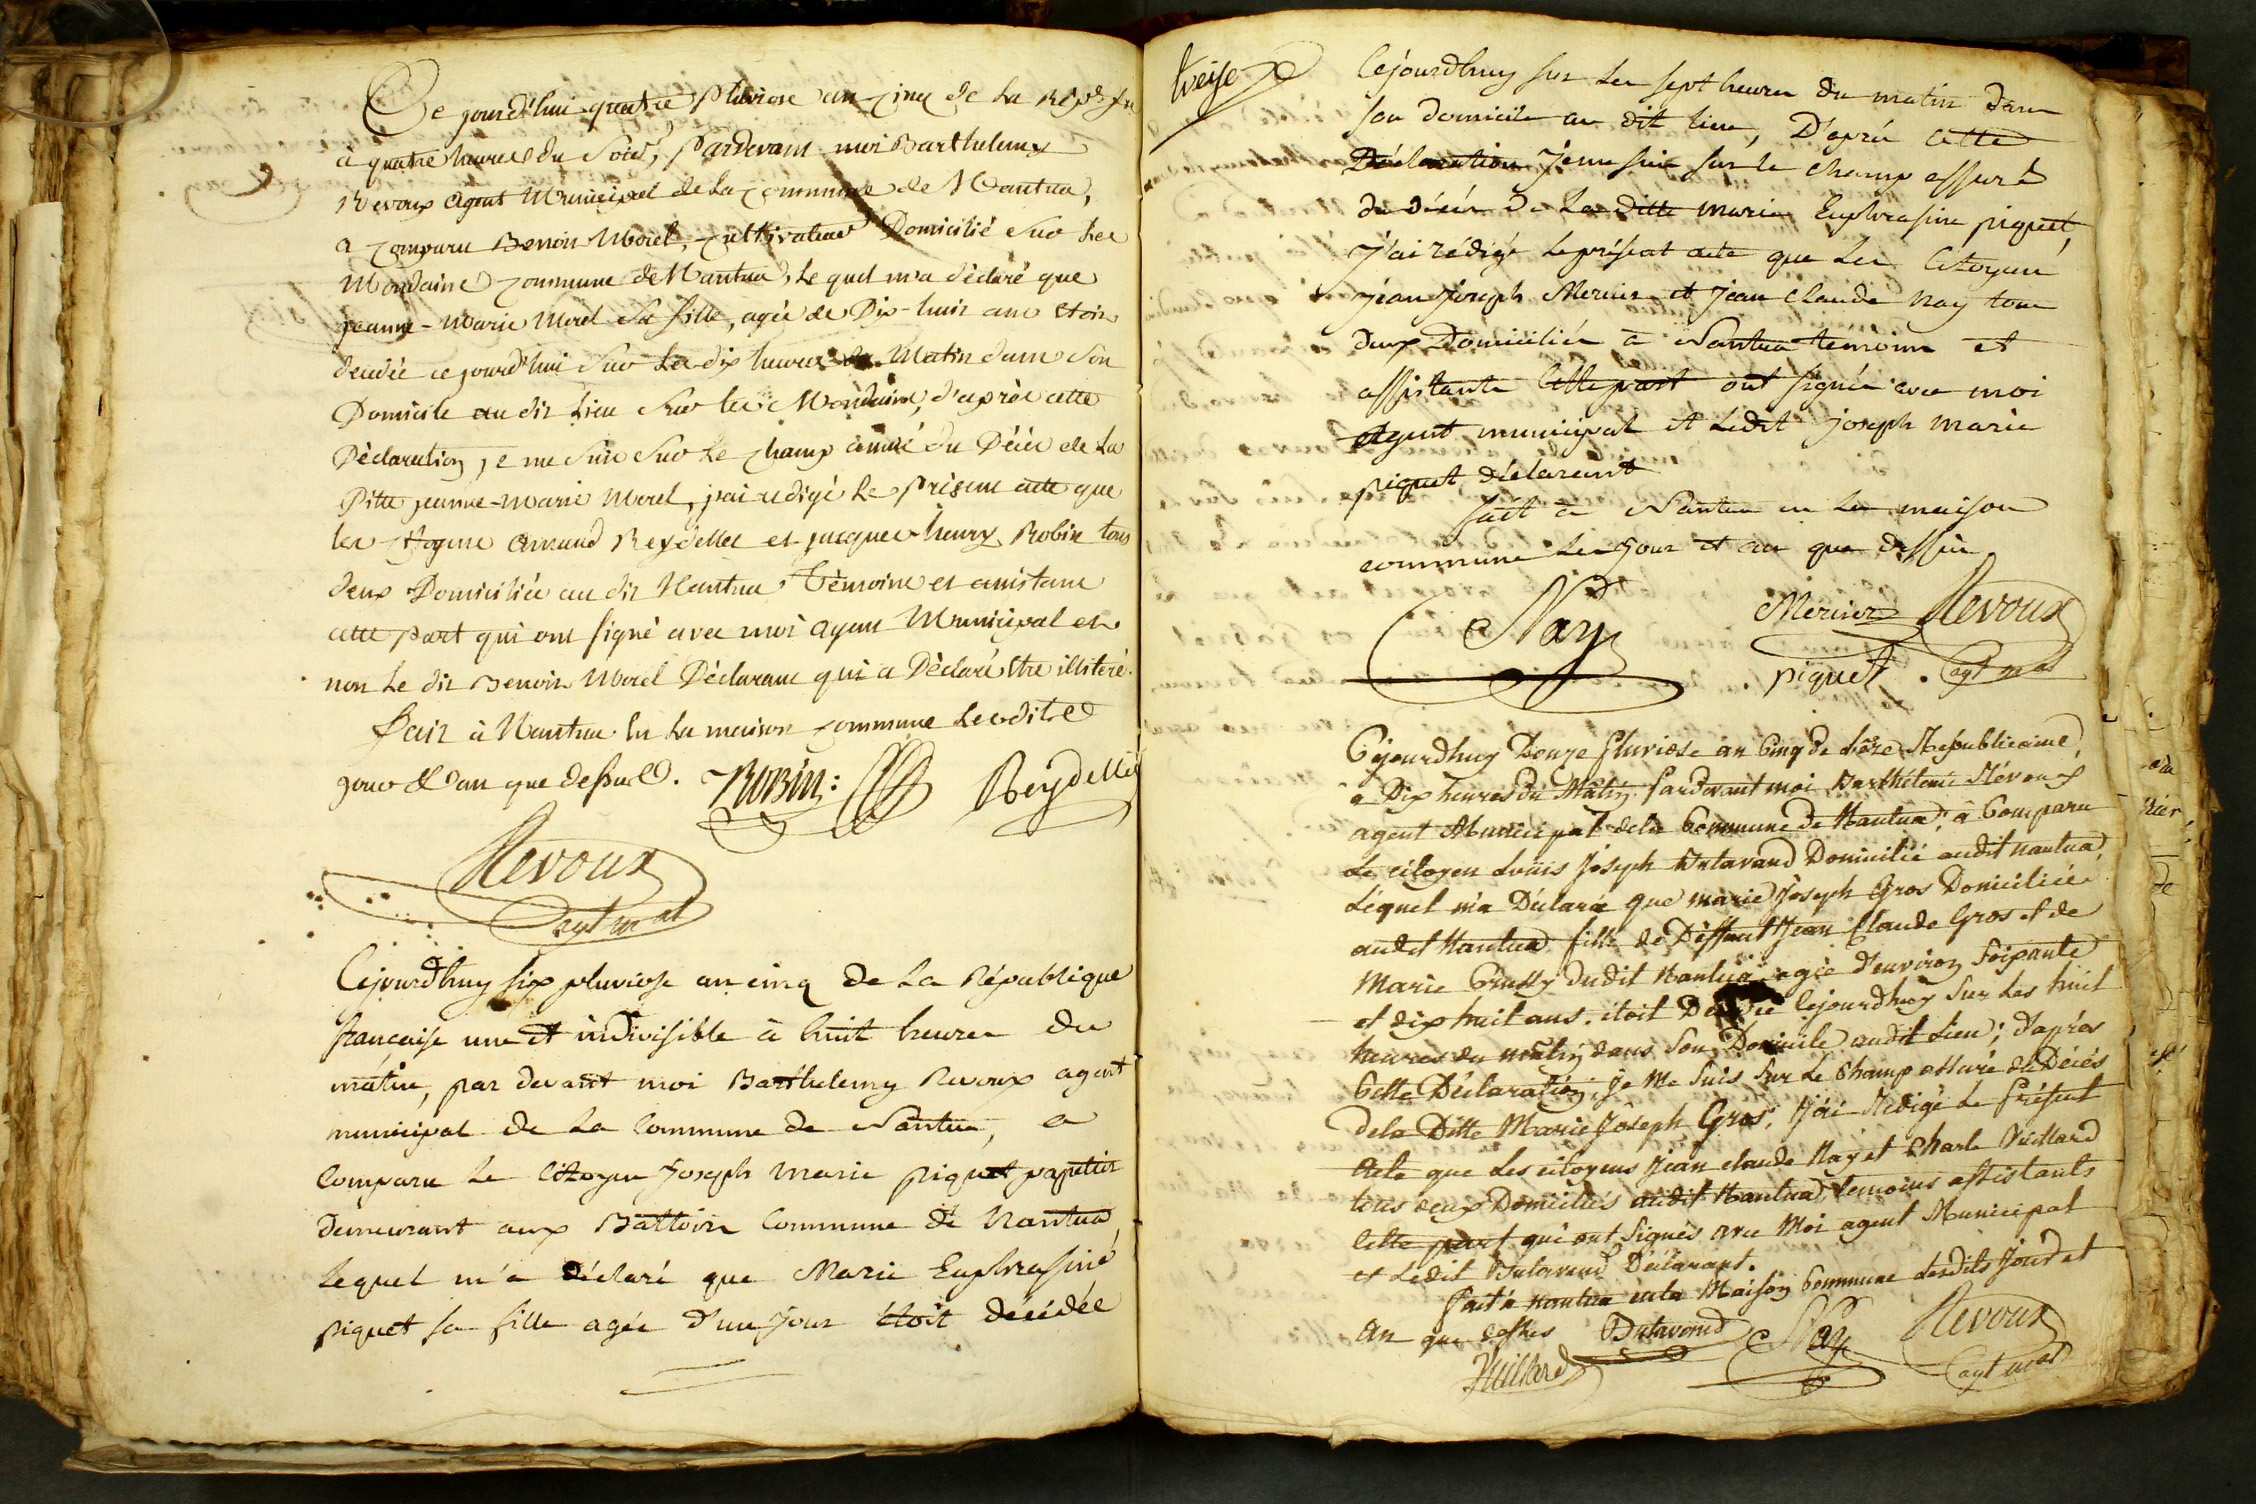 Ce jourd'hui quatre Pluviose an cinq de la Répq. fr.
à quatre heures du Soir, Pardevant moi Barthelemy
Revoux agent Municipal de la commune de Nantua,
a comparu Benoit Morel, cultivateur Domicilié Sur Les
Mondaine commune de Nantua, Lequel m'a déclaré que
jeanne-Marie Morel Sa fille, agée de Dix-huit ans Etoit
décedée ce jourd'hui Sur Les dix heures du Matin dans Son
Domicile au dit Lieu Sur les Mondaine, d'après cette
Déclaration, je me Suis Sur Le champ assuré du Décès de La
Ditte jeanne-Marie Morel, j'ai redigé Le présent acte que
les Citoyens Amand Reydellet et jacques-henry Robin tous
deux Domiciliés au dit Nantua Témoins et assistans
cette part qui ont signé avec moi agent Municipal et
non Le dit Benoit Morel Déclarant qui a Déclaré Etre illiteré.
Fait à Nantua En La maison commune Lesdits
jour & an que dessus. Robin: Reydellet
Revoux
agt mal
Cejourdhuy six pluviose an cinq de La République
francaise une et indivisible à huit heures du
matin, par devant moi Barthelemy Revoux agent
municipal de La Commune de Nantua, a
Comparu Le Citoyen Joseph Marie piquet papetier
demeurant aux Battoirs Commune de Nantua
Lequel m'a déclaré que Marie Euphrasine
piquet sa fille agée d'un jour étoit décédée
treize
Cejourdhuy sur Les sept heures du matin dans
son domicile au dit lieu, D'après cette
Déclaration Je me suis sur le champ assuré
du décès de La ditte marie Euphrasine piquet,
J'ai rédigé Le présent acte que Les Citoyens
Jean Joseph Mercier et Jean Claude Nay tous
deux Domiciliés à Nantua temoins et
assistants Cette part ont signés avec moi
Agent municipal et Ledit Joseph Marie
piquet déclarant
fait à Nantua en La maison
commune Les jour et an que dessus
Nay Mercier Revoux
piquet. agt mal
Cejourdhuy Douze Pluviose an Cinq de L'ère Republicaine,
à Dix heures du Matin Pardevant moi Barthélemi Révoux
agent Municipal dela Commune de Nantua; à Comparu
Le citoyen Louis Joseph Butavand Domicilié audit nantua,
Lequel m'a Déclaré que marie Joseph Gros Domiciliée
audit Nantua fille de Deffunt Jean Claude Gros et de
Marie Crussy dudit Nantua agée d'environ Soixante
et dix huit ans. étoit Décédée Cejourdhuy Sur Les huit
heures du matin dans Son Domicile audit Lieu; d'après
Cette Déclaration; Je me Suis Sur Le Champ assuré du Décès
dela Ditte Marie Joseph Gros; J'ai Redigé Le Présent
Acte que Les citoyens Jean claude Nay et Charle Vuillard
tous deux Domiciliés audit Nantua, temoins assistants
Cette part qui ont Signés avec Moi agent Municipal
et Ledit Butavand Déclarant.
Fait à nantua en la Maison Commune Lesdits Jour et
An que dessus Butavand Nay Revoux
Vuillard agt mal